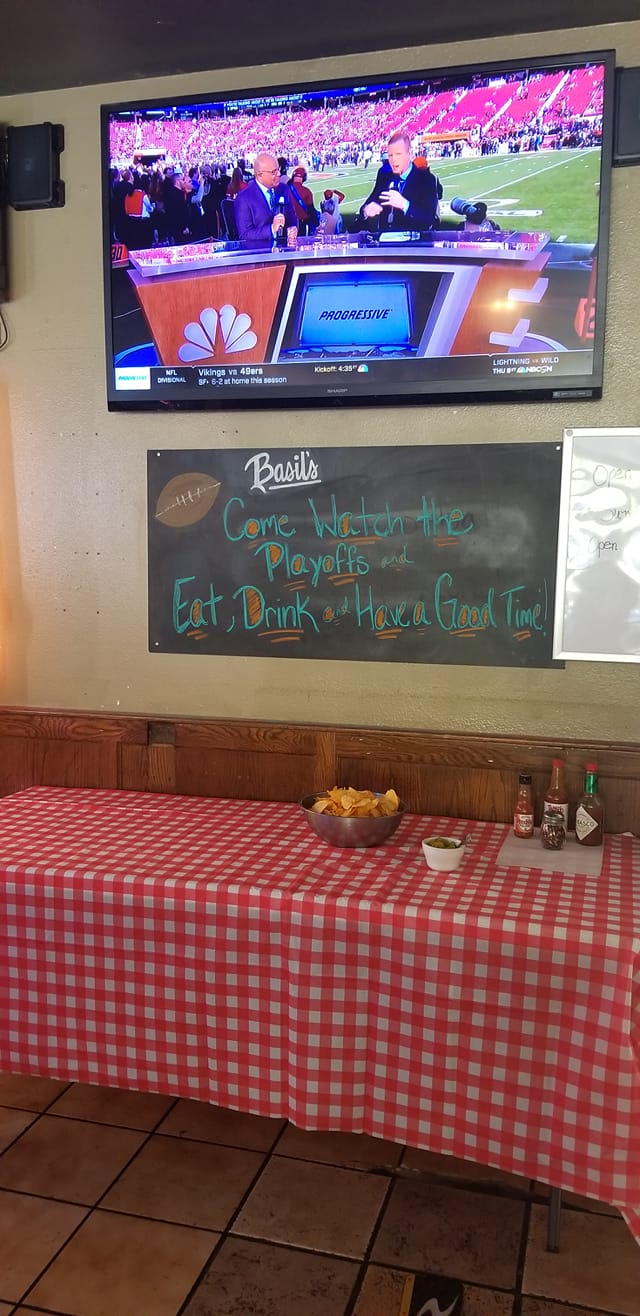 PROGRESSIVE
NFL
DIVISIONAL
Vikings vs 49ers
SF: 6-2 at home this season
Kickoff: 4:35
LIGHTNING vs WILD
THU 8 NBCSN
SHARP
Basil's
Come Watch the
Playoffs and
Eat, Drink and Have a Good Time!
Open
Sun
Open
TABASCO